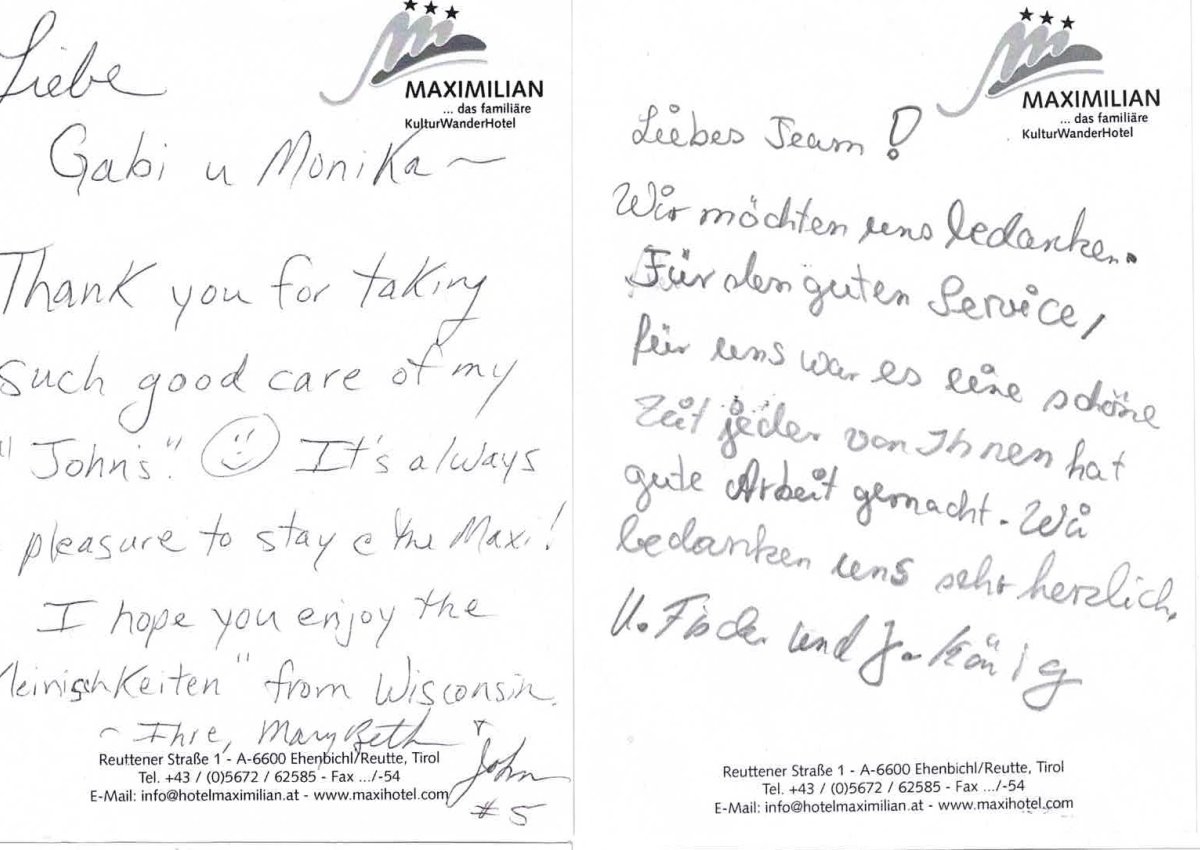 MAXIMILIAN
... das familiäre
KulturWanderHotel
Liebe
Gabi u Monika ~
Thank you for taking
such good care of my
"John's". It's always
pleasure to stay @ the Maxi!
I hope you enjoy the
leinischkeiten" from Wisconsin.
~ Ihre, MaryBeth
+ John
#5
Reuttener Straße 1 - A-6600 Ehenbichl/Reutte, Tirol
Tel. +43 / (0)5672 / 62585 - Fax .../-54
E-Mail: info@hotelmaximilian.at - www.maxihotel.com
MAXIMILIAN
... das familiäre
KulturWanderHotel
Liebes Team!
Wir möchten uns bedanken.
Für den guten Service,
für uns war es eine schöne
Zeit jeder von Ihnen hat
gute Arbeit gemacht. Wir
bedanken uns sehr herzlich.
U. Fischer und J. König
Reuttener Straße 1 - A-6600 Ehenbichl/Reutte, Tirol
Tel. +43 / (0)5672 / 62585 - Fax .../-54
E-Mail: info@hotelmaximilian.at - www.maxihotel.com